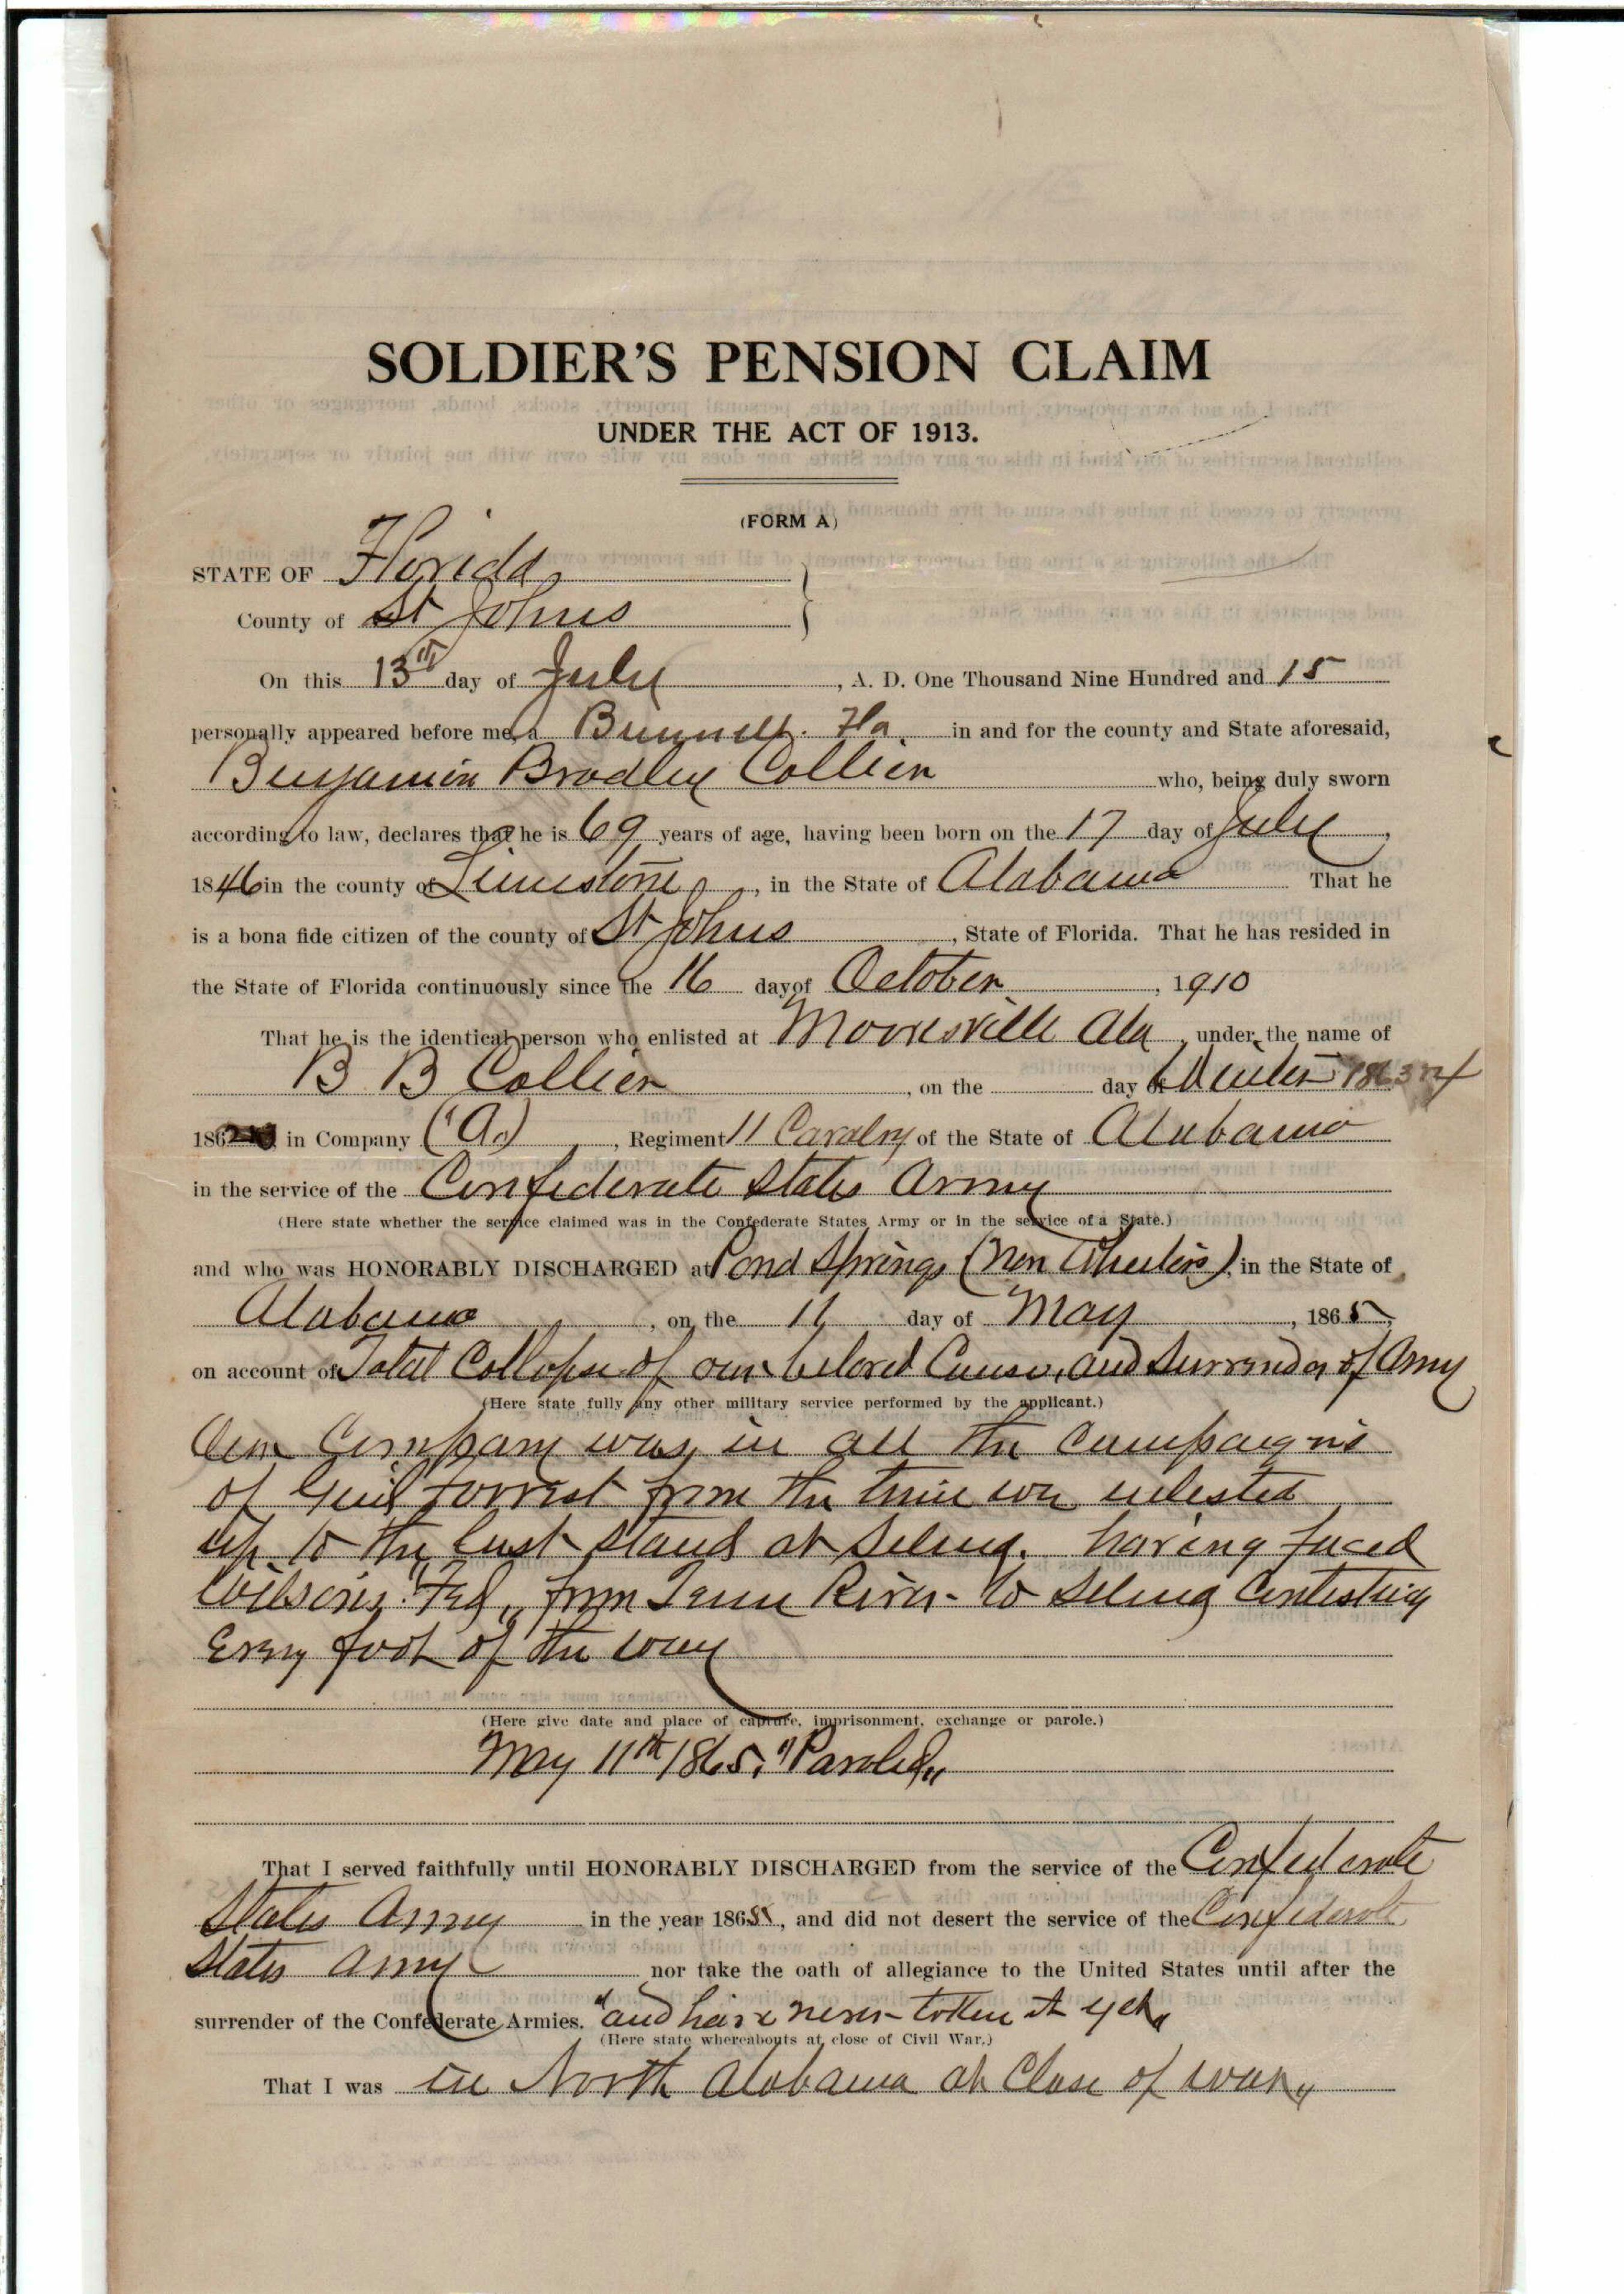 SOLDIER'S PENSION CLAIM
UNDER THE ACT OF 1913.
(FORM A)
STATE OF Florida
County of St Johns
On this 13th day of July, A. D. One Thousand Nine Hundred and 15
personally appeared before me, a Bunnell. Fla. in and for the county and State aforesaid,
Benjamin Bradley Collier who, being duly sworn
according to law, declares that he is 69 years of age, having been born on the 17 day of July,
1846 in the county of Limestone, in the State of Alabama That he
is a bona fide citizen of the county of St Johns, State of Florida. That he has resided in
the State of Florida continuously since the 16 day of October, 1910
That he is the identical person who enlisted at Mooresville Ala, under the name of
B B Collier, on the day of Winter 1863 & 4
186 in Company (A.), Regiment 11 Cavalry of the State of Alabama
in the service of the Confederate States Army
(Here state whether the service claimed was in the Confederate States Army or in the service of a State.)
and who was HONORABLY DISCHARGED at Pond Springs (Now Wheelers), in the State of
Alabama, on the 11 day of May, 1865,
on account of Total Collapse of our beloved Cause, and Surrender of Army
(Here state fully any other military service performed by the applicant.)
Our Company was in all the Campaigns
of Genl Forrest from the time we enlisted
up to the last stand at Selma. having faced
Wilsons "Fed" from Tenn River - to Selma Contesting
Every foot of the way
(Here give date and place of capture, imprisonment, exchange or parole.)
May 11th 1865, "Paroled"
That I served faithfully until HONORABLY DISCHARGED from the service of the Confederate
States Army in the year 1865, and did not desert the service of the Confederate
States Army nor take the oath of allegiance to the United States until after the
surrender of the Confederate Armies. "and have never taken it yet"
(Here state whereabouts at close of Civil War.)
That I was in North Alabama at Close of war"